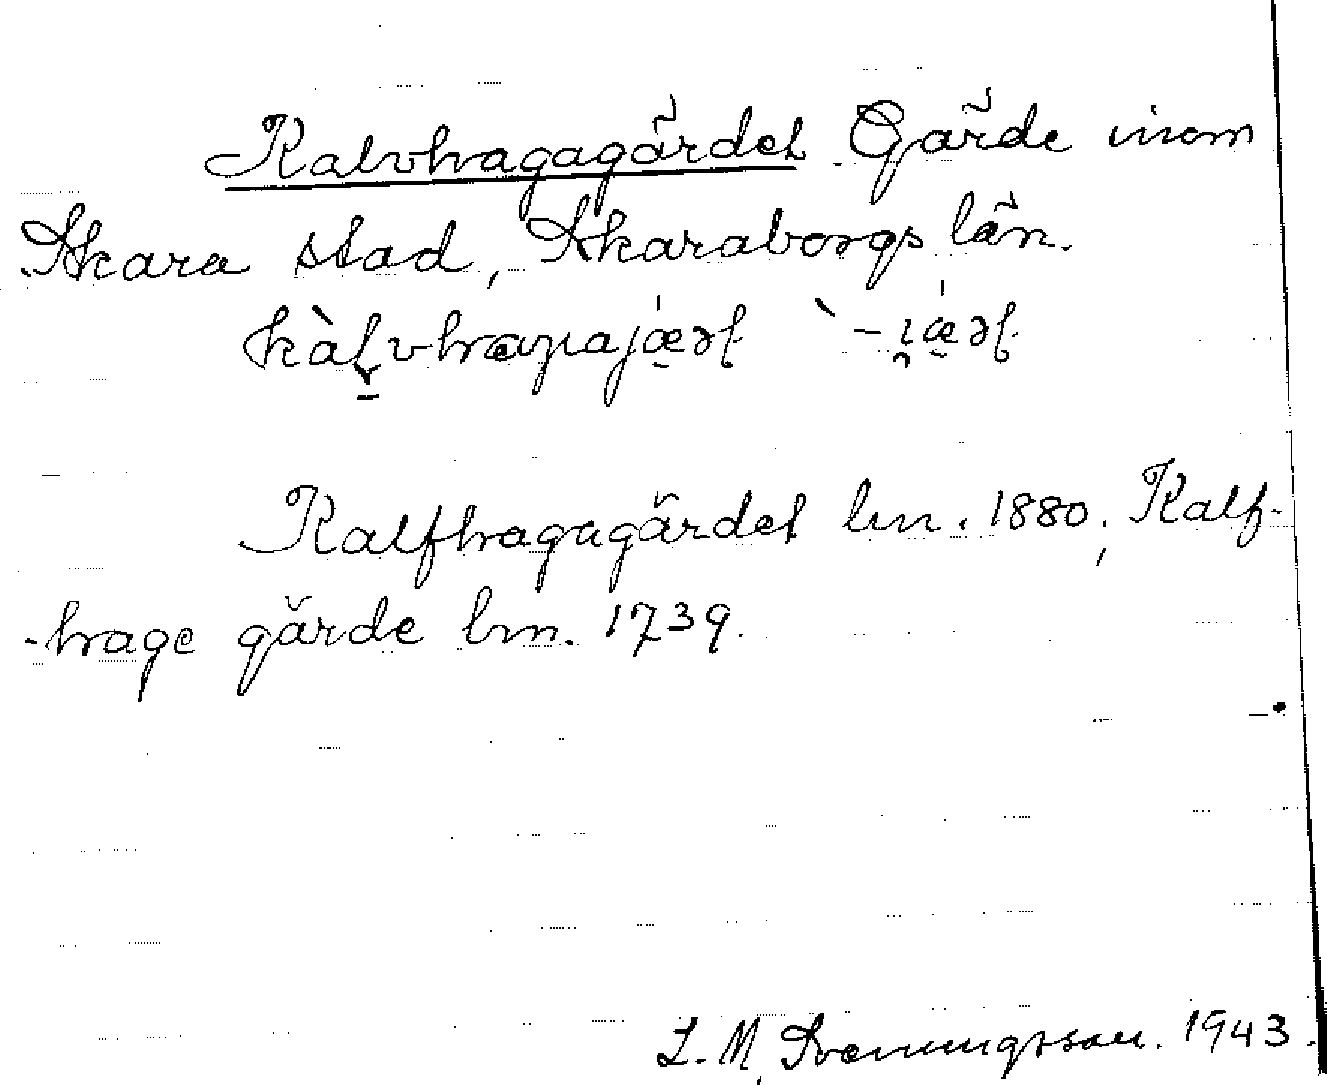 Kalvhagagärdet Gärde inom
Skara stad, Skaraborgs län.
Kalfhagagärdet lm. 1880, Kalf-
-hage gärde lm. 1739.
L. M. Svenungsson. 1943.